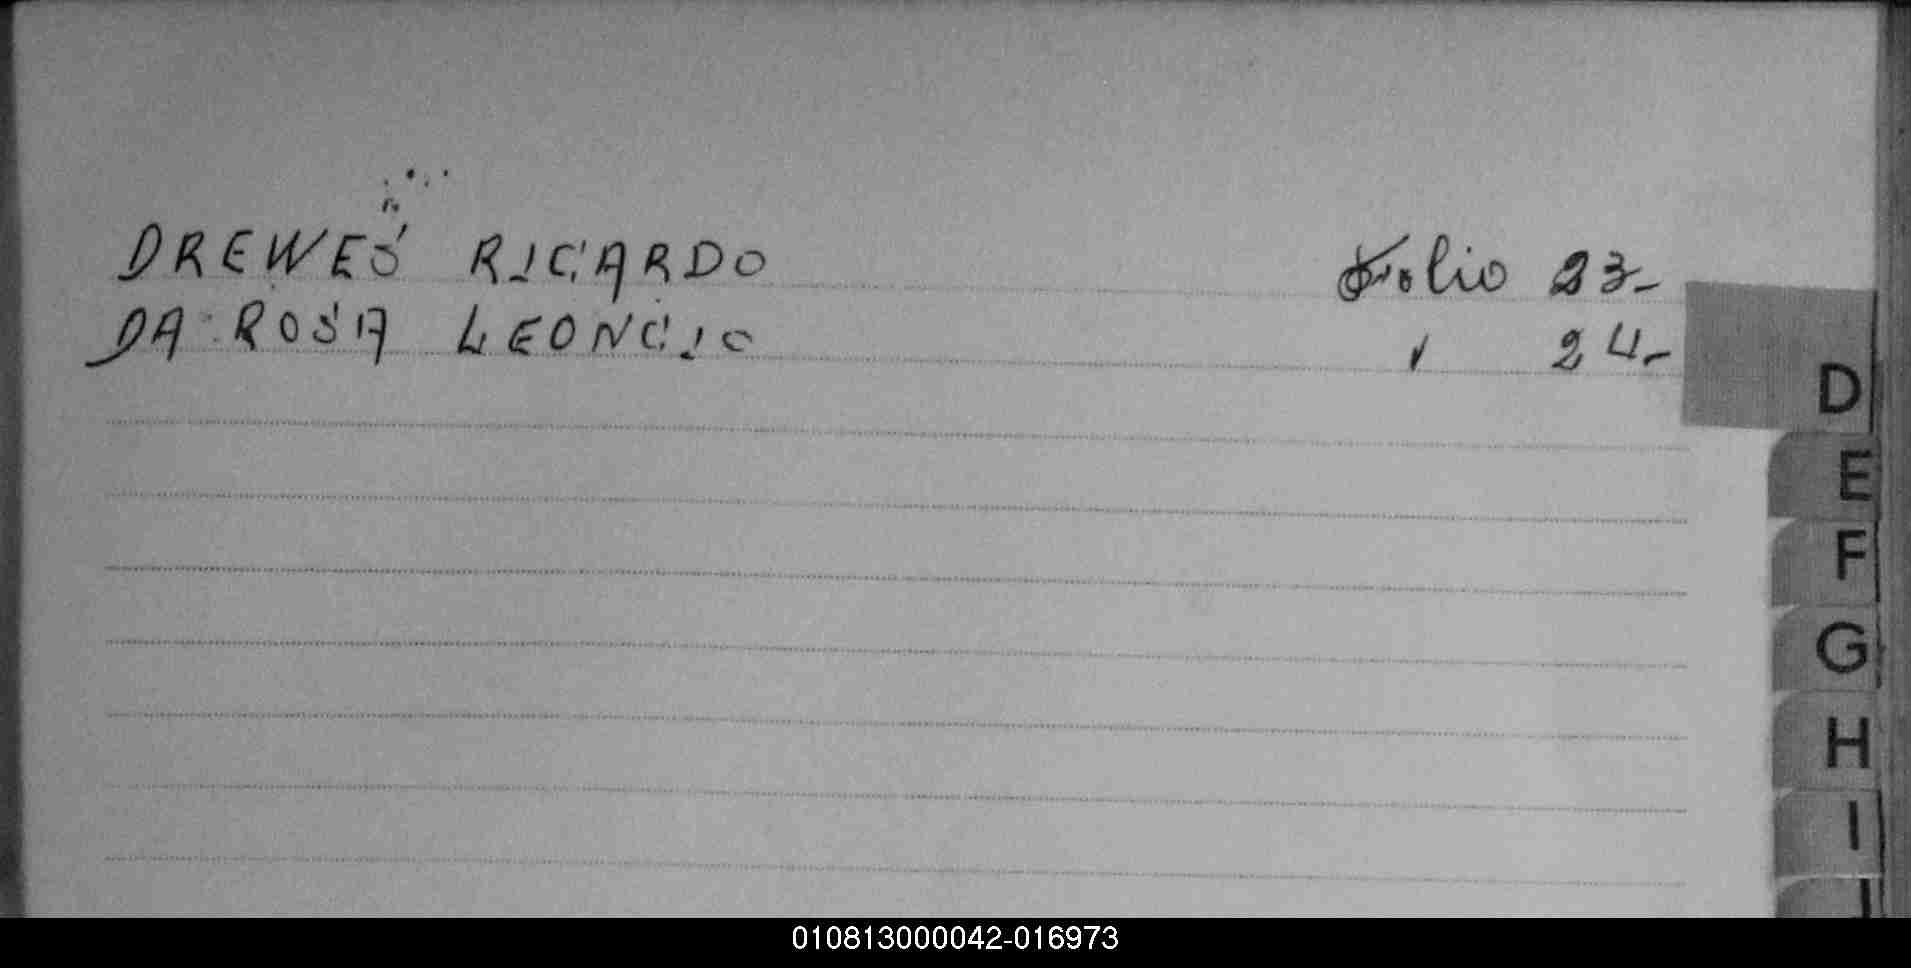 DREWES RICARDO Folio 23-
DA ROSA LEONCIO " 24-
D
E
F
G
H
I
J
010813000042-016973